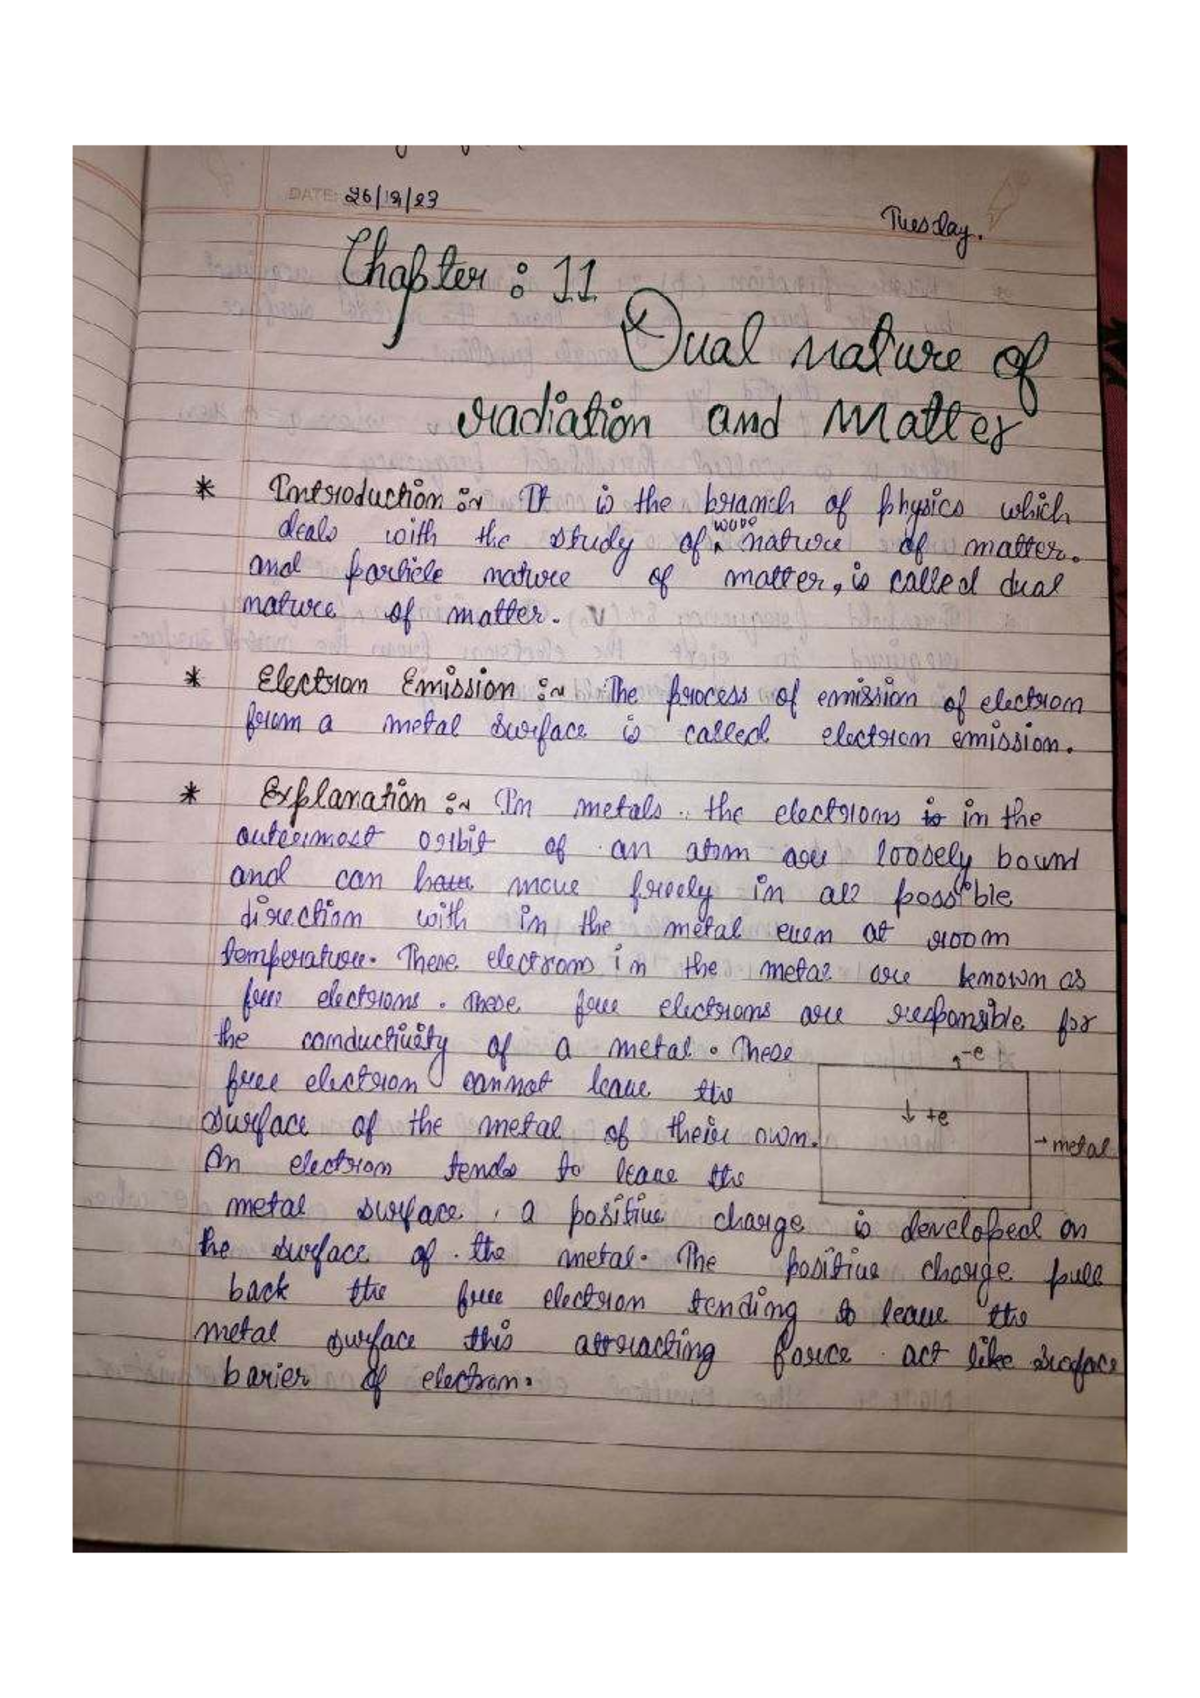 DATE: 26/12/23
Tuesday.
Chapter : 11
Dual nature of
radiation and Matter
* Introduction :~ It is the branch of physics which
deals with the study of wave nature of matter.
and particle nature of matter, is called dual
nature of matter.
* Electron Emission :~ The process of emission of electron
from a metal surface is called electron emission.
* Explanation :~ In metals. the electrons is in the
outermost orbit of an atom are loosely bound
and can have move freely in all possible
direction with in the metal even at room
temperature. These electrons in the metal are known as
free electrons. These free electrons are responsible for
the conductivity of a metal. These
free electron cannot leave the
surface of the metal of their own.
An electron tends to leave the
metal surface, a positive charge is developed on
the surface of the metal. The positive charge pull
back the free electron tending to leave the
metal surface this attracting force act like surface
barier of electron.
-e
↓ +e
→ metal